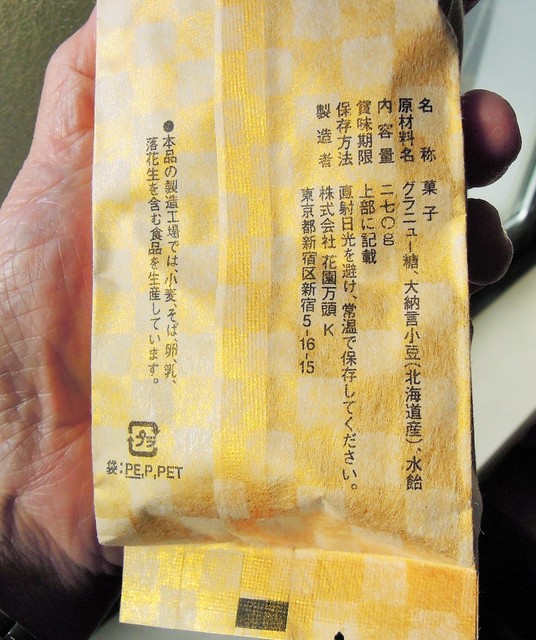 名称 菓子
原材料名 グラニュー糖、大納言小豆(北海道産)、水飴
内容量 二七〇g
賞味期限 上部に記載
保存方法 直射日光を避け、常温で保存してください。
製造者 株式会社 花園万頭 K
東京都新宿区新宿5-16-15
●本品の製造工場では、小麦、そば、卵、乳、
落花生を含む食品を生産しています。
プラ
袋:PE,P,PET